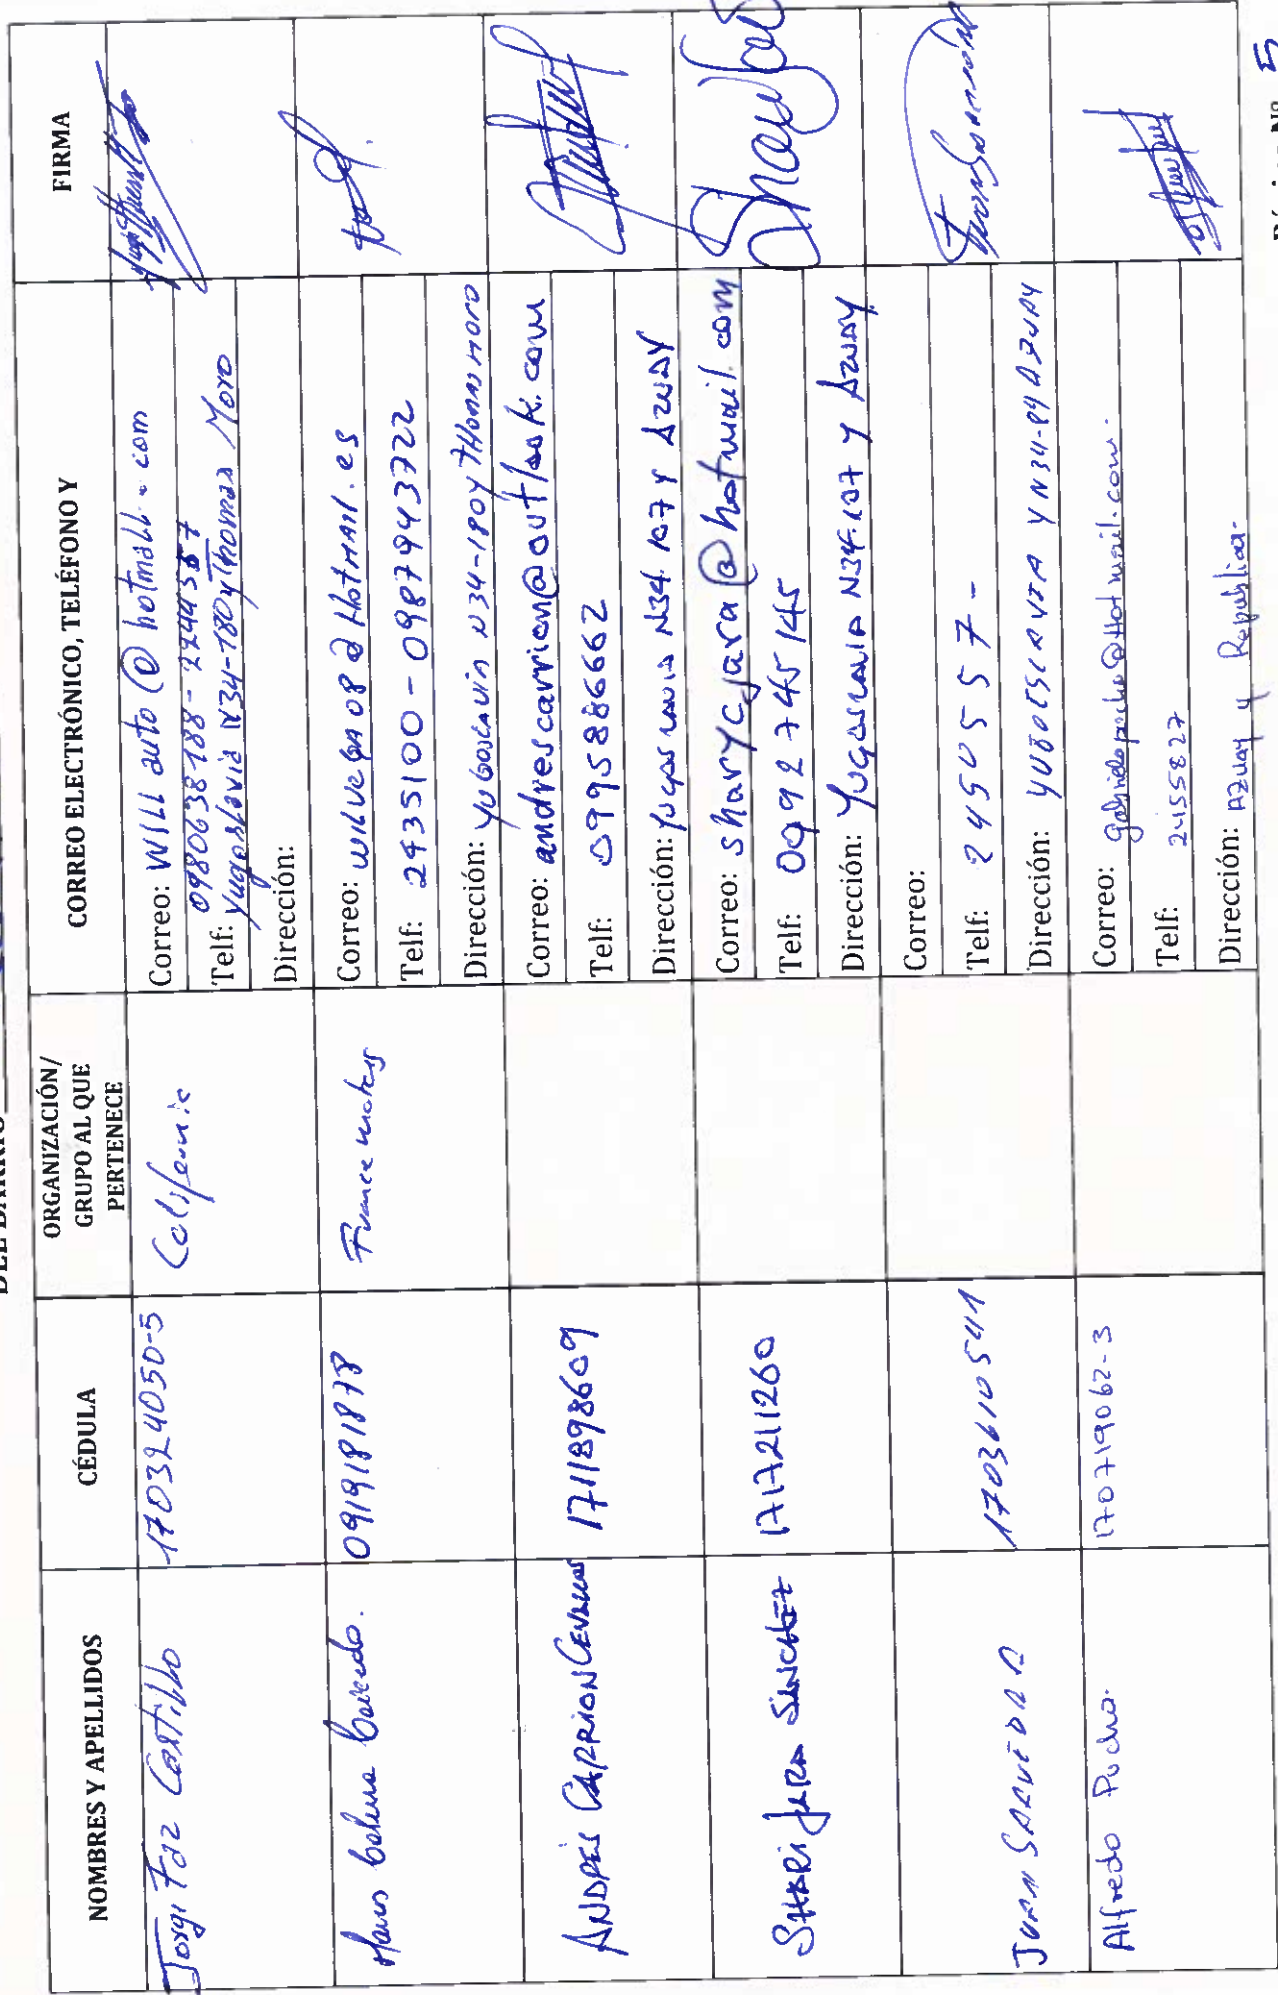 NOMBRES Y APELLIDOS
CÉDULA
ORGANIZACIÓN/
GRUPO AL QUE
PERTENECE
CORREO ELECTRÓNICO, TELÉFONO Y
FIRMA
Castillo
170324050-5
Correo: WILL auto @ hotmall.com
Telf: 0980638188 - 2244557
Yugoslavia N34-180 y Thomas Moro
Dirección:
091918187
Correo: wilvega08@HotMAIl.es
Telf: 2435100 - 0987943722
Dirección: Yugoscavia N34-180 y Thomas Moro
ANDRÉS CARRION CEVALLOS
1711898609
Correo: andrescarrion@outlook.com
Telf: 0995886662
Dirección: Yugoslavia N34 107 Y AZUAY
SHARI JARA SÁNCHEZ
1717211260
Correo: sharycjara@hotmail.com
Telf: 0992745145
Dirección: Yugoslavia N34-107 Y AZUAY
JUAN SAAVEDRA
1703610541
Correo:
Telf: 2450557-
Dirección: Y N34-84 AZUAY
Alfredo
170719062-3
Correo: @Hotmail.com.
Telf: 2455827
Dirección: Azuay y Republica.
5